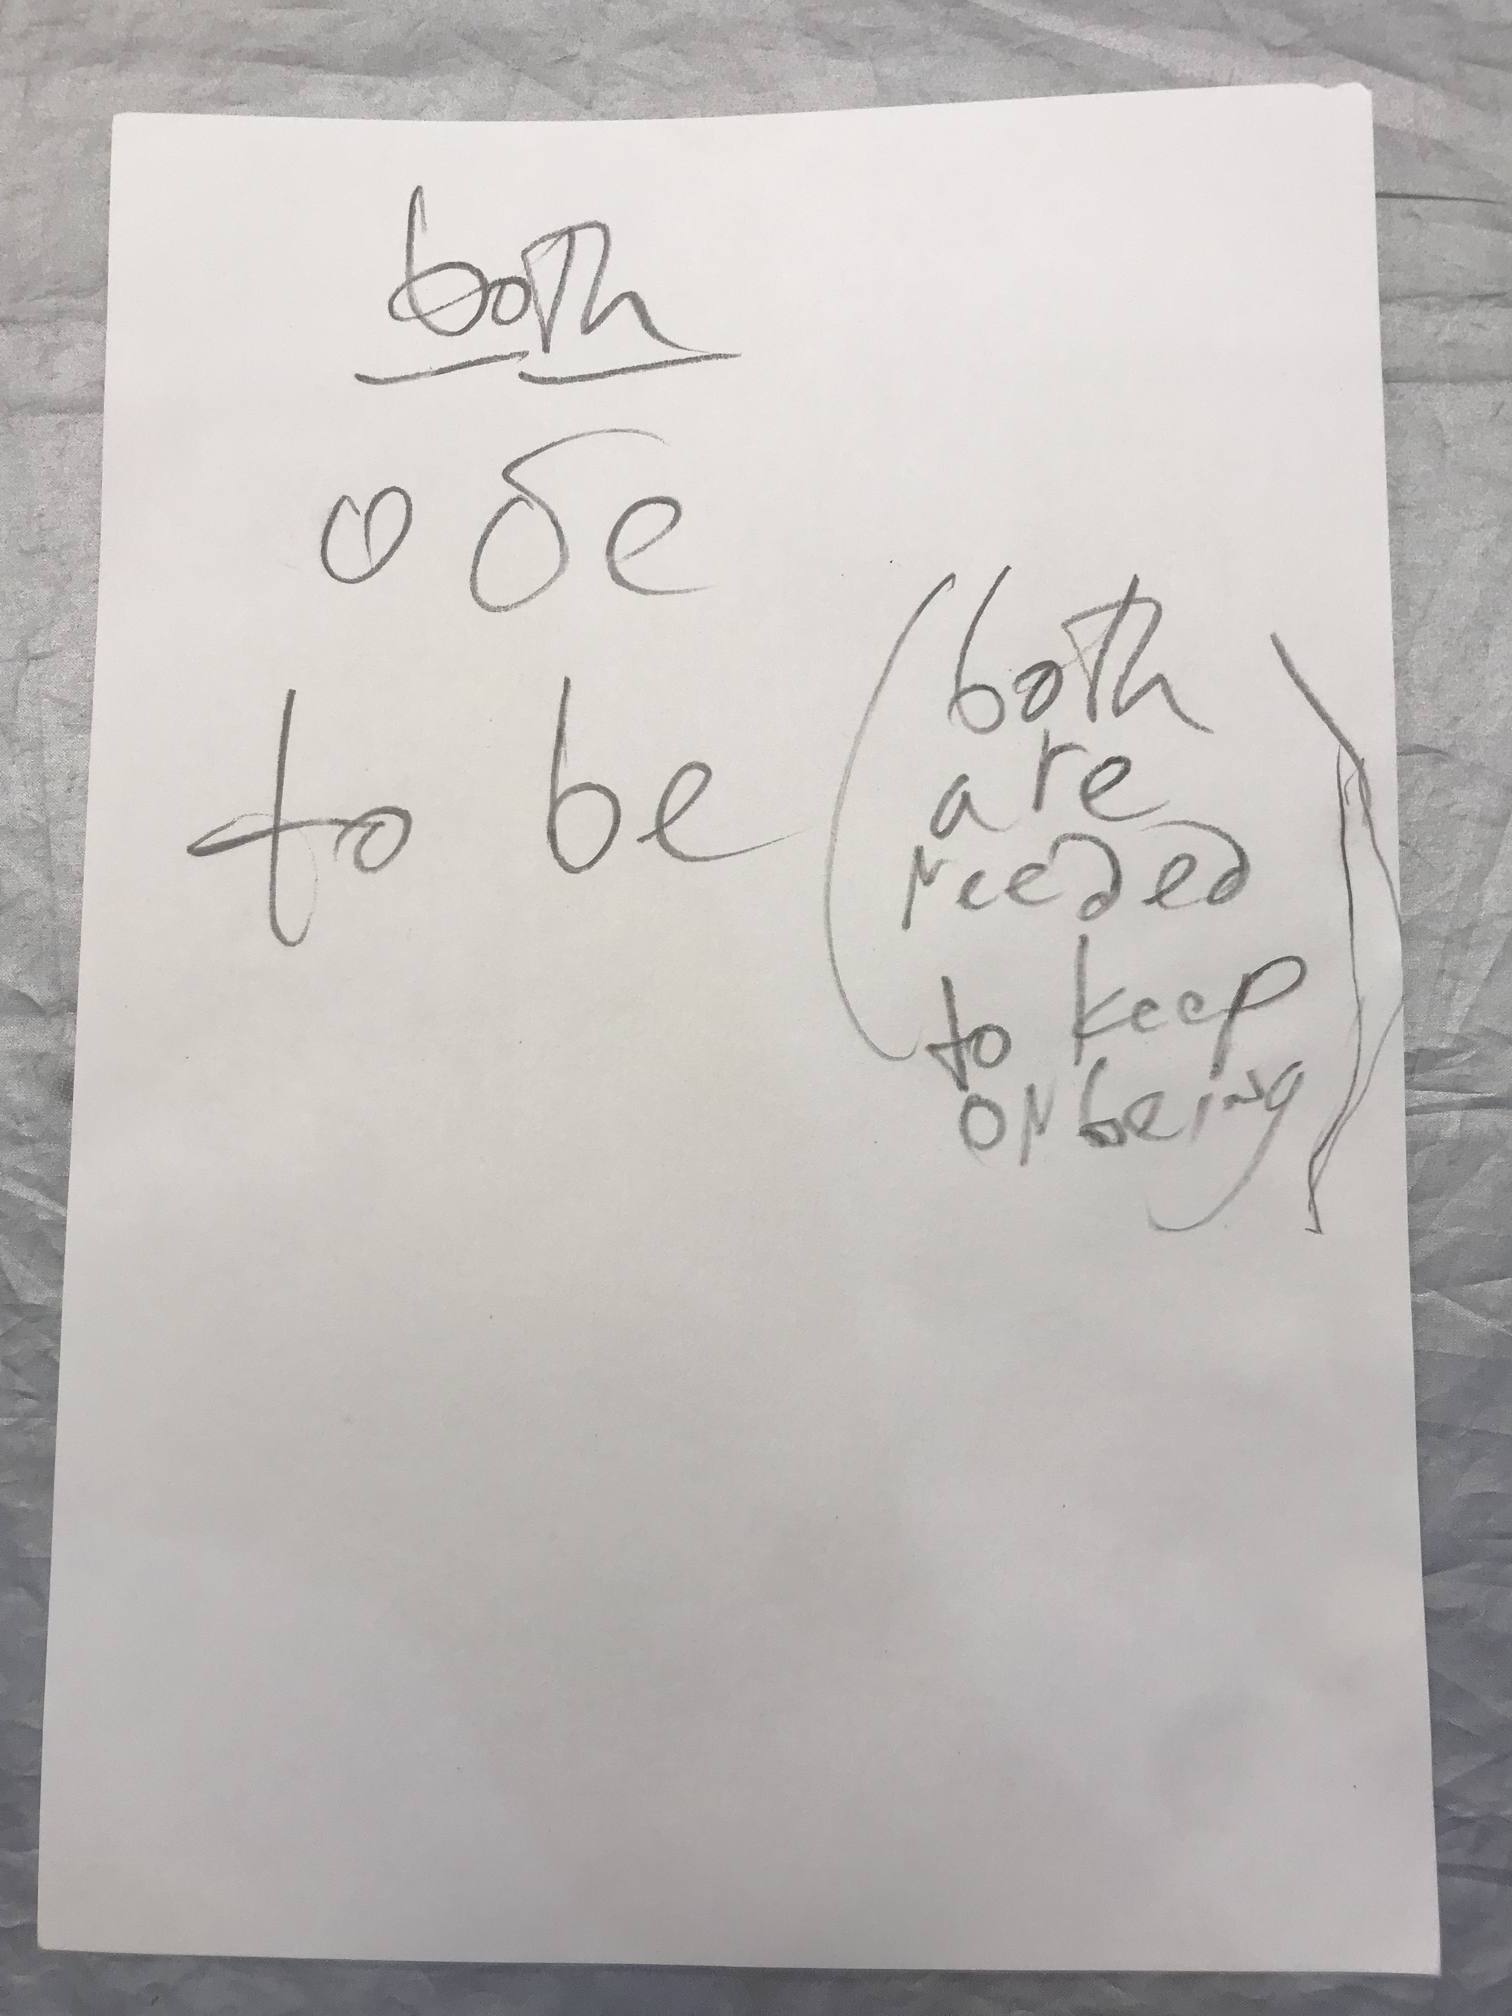 both
обе
to be
(both
are
needed
to keep
on being)